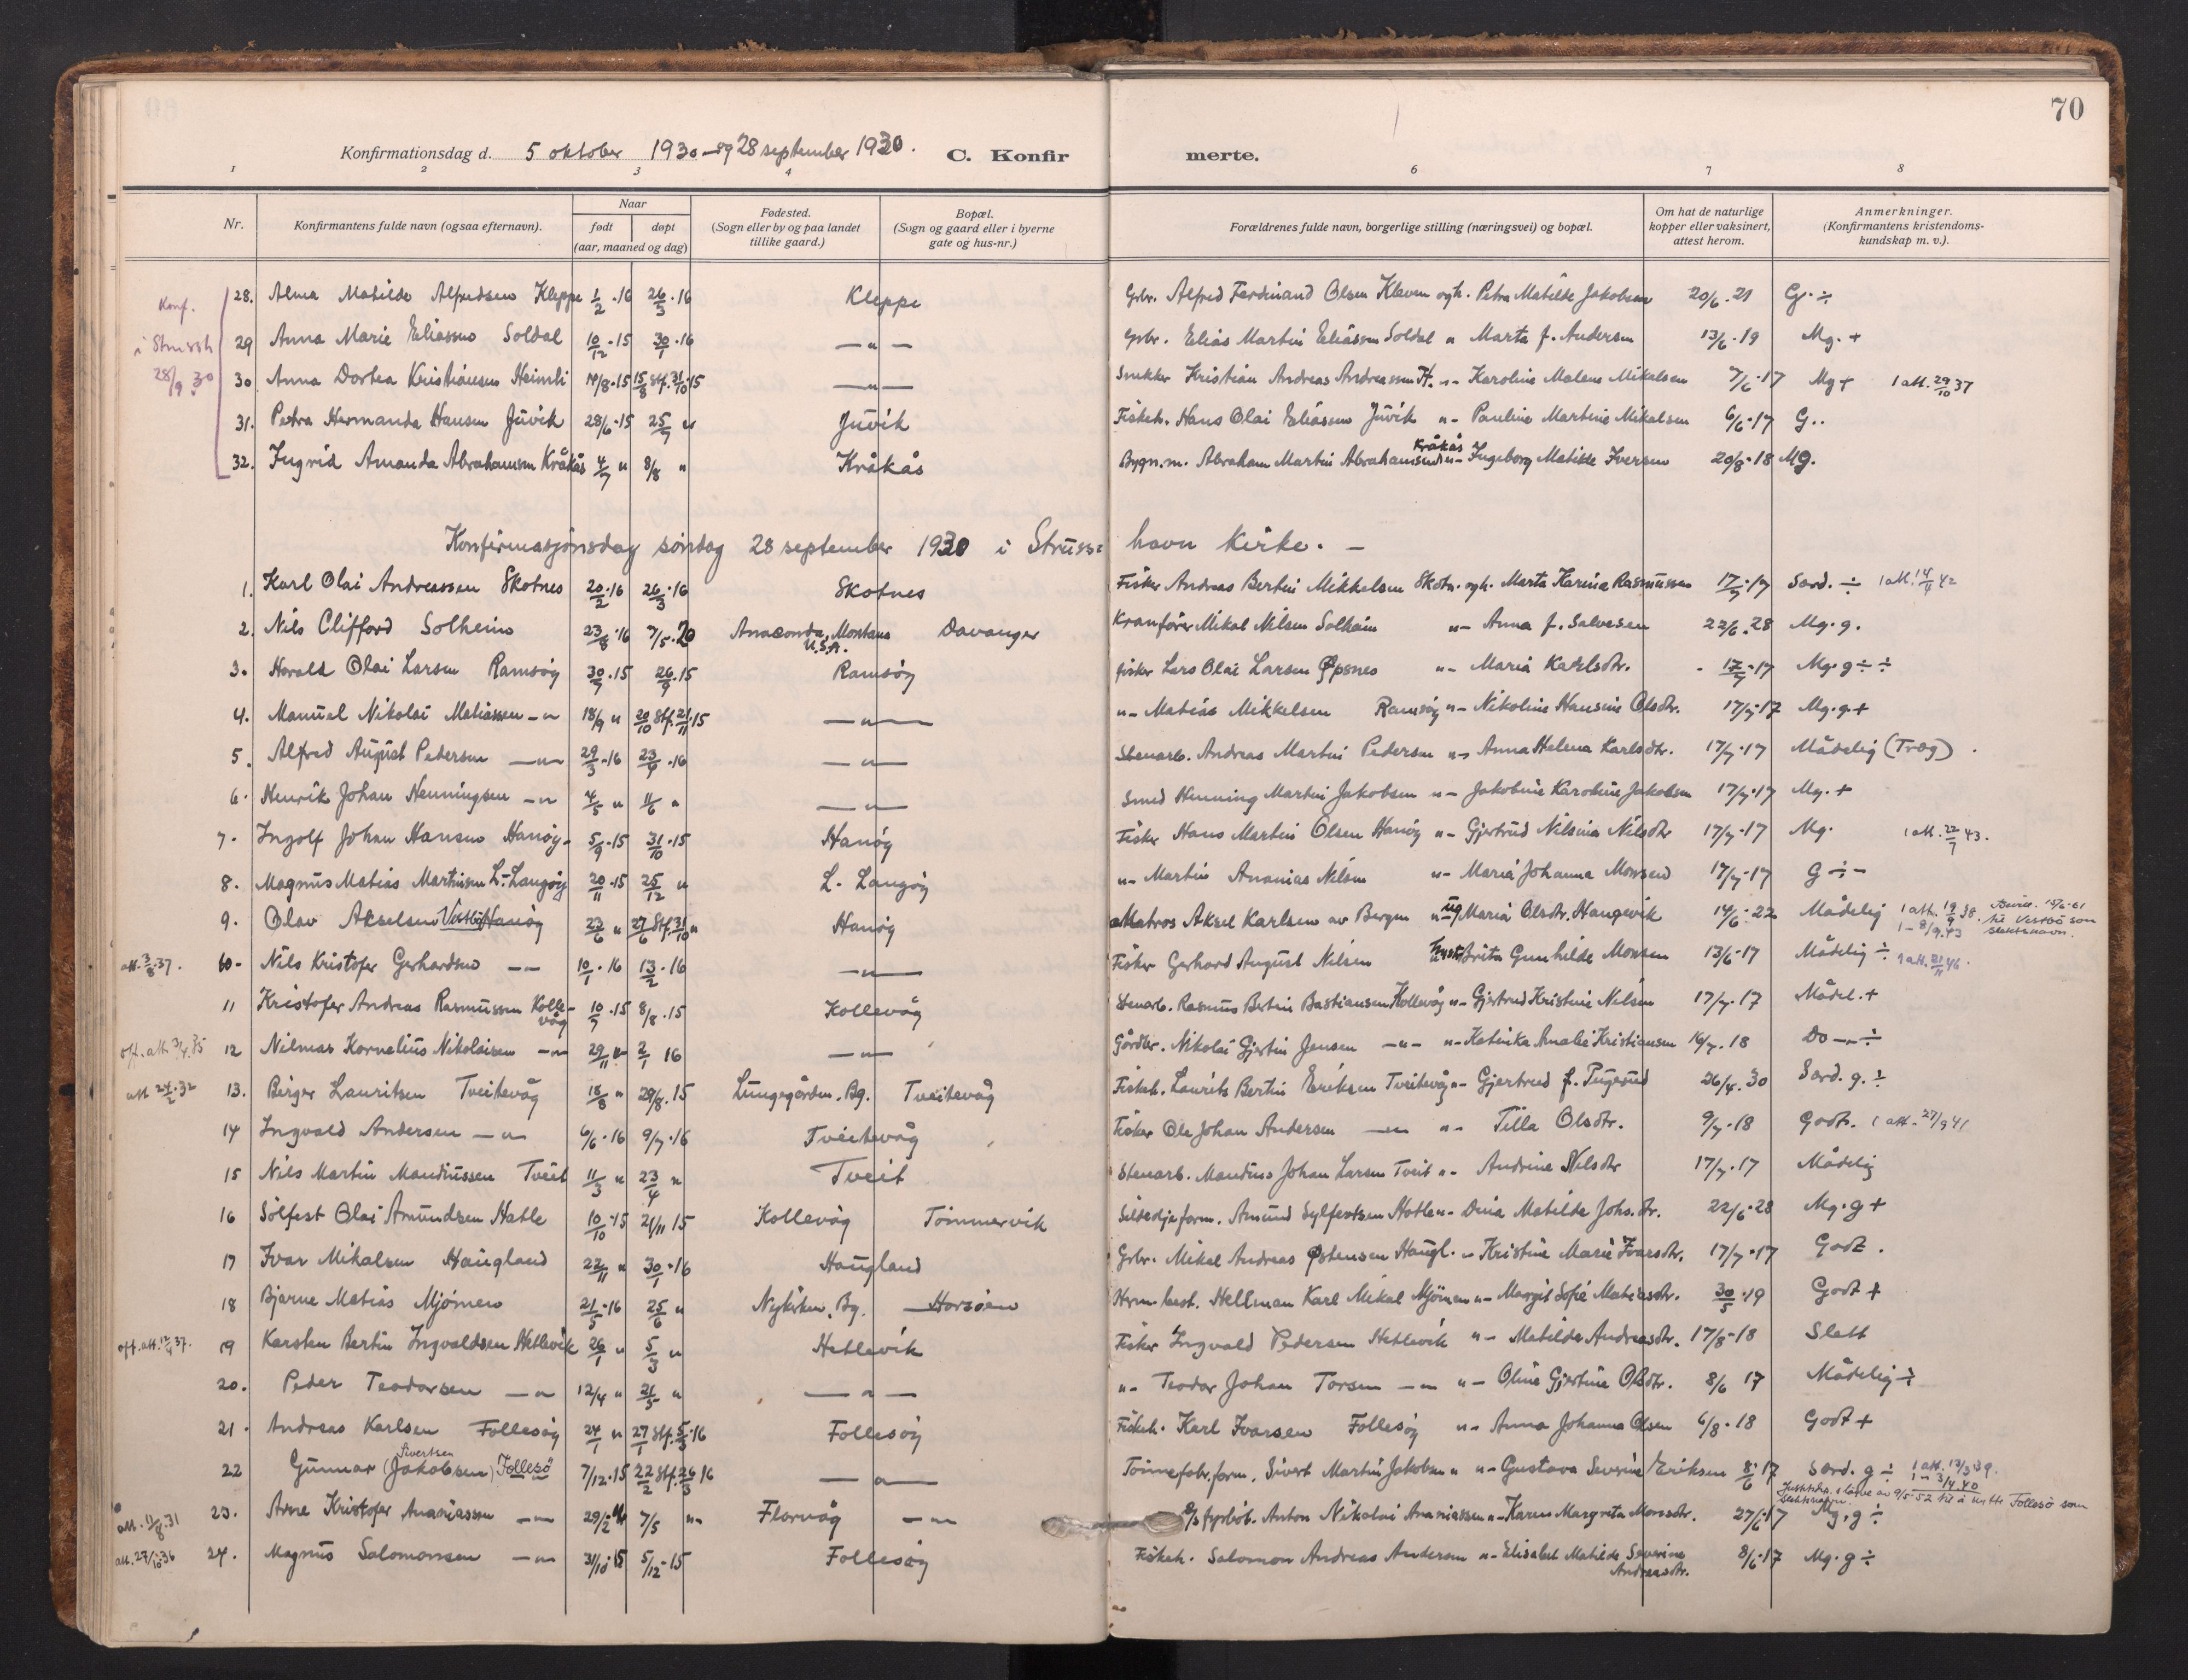 70
Konfirmationsdag d. 5 oktober 1930 – og 28 september 1930. C. Konfir merte.
1 2 3 4 6 7 8
Nr. Konfirmantens fulde navn (ogsaa efternavn). Naar født døpt (aar, maaned og dag) Fødested. (Sogn eller by og paa landet tillike gaard.) Bopæl. (Sogn og gaard eller i byerne gate og hus-nr.) Forældrenes fulde navn, borgerlige stilling (næringsvei) og bopæl. Om hat de naturlige kopper eller vaksinert, attest herom. Anmerkninger. (Konfirmantens kristendoms-kundskap m. v.).
Konf. i Strussh 28/9 30
28. Alma Matilde Alfredsen Kleppe 1/2 · 16 26/3 · 16 Kleppe Grbr. Alfred Ferdinand Olsen Kleven ogh. Petra Matilde Jakobsen 20/6 · 21 G · ÷
29 Anna Marie Eliassen Soldal 10/12 · 15 30/1 · 16 — " — Grbr. Elias Martin Eliassen Soldal " Marta f. Andersen 13/6 · 19 Mg. +
30 Anna Dortea Kristiansen Heimli 14/8 · 15 15/8 Stf. 31/10 · 15 — " — Snekker Kristian Andreas Andreassen H. " - Karoline Malene Mikalsen 7/6 · 17 Mg + 1 att. 29/10 37
31. Petra Hermanda Hansen Juvik 28/6 · 15 25/7 " Juvik Fiskeh. Hans Olai Eliassen Juvik " - Pauline Martine Mikalsen 6/6 · 17 G..
32. Ingrid Amanda Abrahamsen Kråkås 4/7 " 8/8 " Kråkås Bygn.m. Abraham Martin Abrahamsen Kråkås " - Ingeborg Matilde Iversen 20/8 · 18 Mg.
Konfirmasjonsdag søndag 28 september 1930 i Struss= havn kirke. —
1. Karl Olai Andreassen Skotnes 20/2 · 16 26/3 · 16 Skotnes Fisker Andreas Bertin Mikkelsen Skotn. ogh. Marta Karina Rasmussen 17/7 · 17 Særd. ÷ 1 att. 14/4 42
2. Nils Clifford Solheim 23/8 · 16 7/5 · 20 Anaconda, Montana U.S.A. Davanger Kranfører Mikal Nilsen Solheim " - Anna f. Salvesen 22/6 · 28 Mg. g.
3. Harald Olai Larsen Ramsøy 30/7 · 15 26/9 · 15 Ramsøy fisker Lars Olai Larsen Øpsnes " - Maria Karlsdtr. 17/7 · 17 Mg. g ÷ ÷
4. Manuel Nikolai Matiassen — " 18/9 " 20/10 Stf. 21/11 · 15 — " — " - Matias Mikkelsen Ramsøy " - Nikoline Hansine Olsdtr. 17/7 · 17 Mg. g. +
5. Alfred August Pedersen — " — 29/3 · 16 23/4 · 16 — " — Stenarb. Andreas Martin Pedersen " - Anna Helena Karlsdtr. 17/7 · 17 Mådelig (Træg).
6. Henrik Johan Henningsen — " 4/5 " 11/6 " — " — Smed Henning Martin Jakobsen " - Jakobine Karoline Jakobsen 17/7 · 17 Mg. +
7. Ingolf Johan Hansen Hanøy - 5/9 · 15 31/10 · 15 Hanøy Fisker Hans Martin Olsen Hanøy " - Gjertrud Nilsina Nilsdtr 17/7 · 17 Mg. 1 att. 22/7 43.
8. Magnus Matias Martinsen L.-Langøy 20/11 · 15 25/12 " L. Langøy " - Martin Ananias Nilsen " - Maria Johanna Monsen 17/7 · 17 G ÷ -
9. Olav Akselsen Vestbø Hanøy 23/6 " 27/6 Stf. 31/10 " Hanøy Matros Aksel Karlsen av Bergen " ug. Maria Olsdtr. Haugevik 14/6 · 22 Mådelig 1 att. 19/9 38. 1 - 8/9. 43 til Vestbø som slektsnavn.
att. 3/8 37. 10 - Nils Kristofer Gerhardsen — — 10/1 · 16 13/2 · 16 — " — Fisker Gerhard August Nilsen hustr. Brita Gunhilde Monsen 13/6 · 17 Mådelig ÷ 1 att. 21/11 46.
11 Kristofer Andreas Rasmussen Kollevåg 10/7 · 15 8/8 · 15 Kollevåg Stenarb. Rasmus Bertin Bastiansen Kollevåg " - Gjertrud Kristine Nilsen 17/7 · 17 Mådel. +
off. att. 3/4 35 12 Nilmas Kornelius Nikolaisen — " 29/11 " 2/1 16 — " — Gårdbr. Nikolai Gjertin Jensen — " — " - Katinka Amalie Kristiansen 16/7 · 18 Do — " ÷
att 24/2 · 32 13. Birger Lauritsen Tveitevåg 18/8 " 29/8 · 15 Lungegården. Bg. Tveitevåg Fiskeh. Laurits Bertin Eriksen Tveitevåg " - Gjertrud f. 26/4 · 30 Særd. g. ÷
14 Ingvald Andersen — " 6/6 · 16 9/7 · 16 Tveitevåg Fisker Ole Johan Andersen — " - Tilla Olsdtr. 9/7 · 18 Godt. 1 att. 27/9 41
15 Nils Martin Mandiussen Tveit 11/3 " 23/4 " Tveit Stenarb. Mandius Johan Larsen Tveit " - Andrine Nilsdtr 17/7 · 17 Mådelig
16 Solfest Olai Amundsen Hatle 10/10 · 15 21/11 15 Kollevåg Tømmervik Sildoljeform. Amund Sylfestsen Hatle " - Dina Matilde Johs.dtr. 22/6 · 28 Mg. g +
17 Ivar Mikalsen Haugland 22/11 " 30/1 · 16 Haugland Grbr. Mikal Andreas Østensen Haugl. " - Kristine Marie Ivarsdtr. 17/7 · 17 Godt.
18 Bjarne Matias Mjømen 21/5 · 16 25/6 " Nykirken. Bg. Horsøen Hrm. best. Hellman Karl Mikal Mjømen " - Margit Sofie Matiasdtr. 30/5 · 19 Godt +
off. att. 12/4 37. 19 Karsten Bertin Ingvaldsen Hetlevik 26/1 " 5/3 " Hetlevik Fisker Ingvald Pedersen Hetlevik " - Matilde Andreasdtr. 17/8 · 18 Slett
20. Peder Teodorsen — " 12/4 " 21/5 " — " — " - Teodor Johan Torsen — " " - Oline Gjertine Olsdtr. 8/6 17 Mådelig ÷
21. Andreas Karlsen Follesøy 24/1 " 27/1 Stf. 5/3 · 16 Follesøy Fiskeh. Karl Ivarsen Follesøy " - Anna Johanna Olsen 6/8 · 18 Godt +
22 Gunnar Sivertsen (Jakobsen) Follesø 7/12 · 15 22/2 Stf. 26/3 16 — " — Tønnefabr.form. Sivert Martin Jakobsen " " - Gustava Severine Eriksen 8/6 · 17 Særd. g ÷ 1 att. 13/3 39. 1 - 3/4 40
av 9/5 52 til å nytte Follesø som slektsnavn.
att. 11/8 31 23. Arne Kristofer Ananiassen — " 29/2 16 7/5 " - Florvåg — " D/s fyrbøt. Anton Nikolai Ananiassen " - Karen Margreta Monsdtr. 27/6 17 Mg. g ÷
att. 27/10 36 24. Magnus Salomonsen — " 31/10 · 15 5/12 · 15 Follesøy Fiskeh. Salomon Andreas Andersen " - Elisabet Matilde Severine Andreasdtr. 8/6 · 17 Mg. g ÷